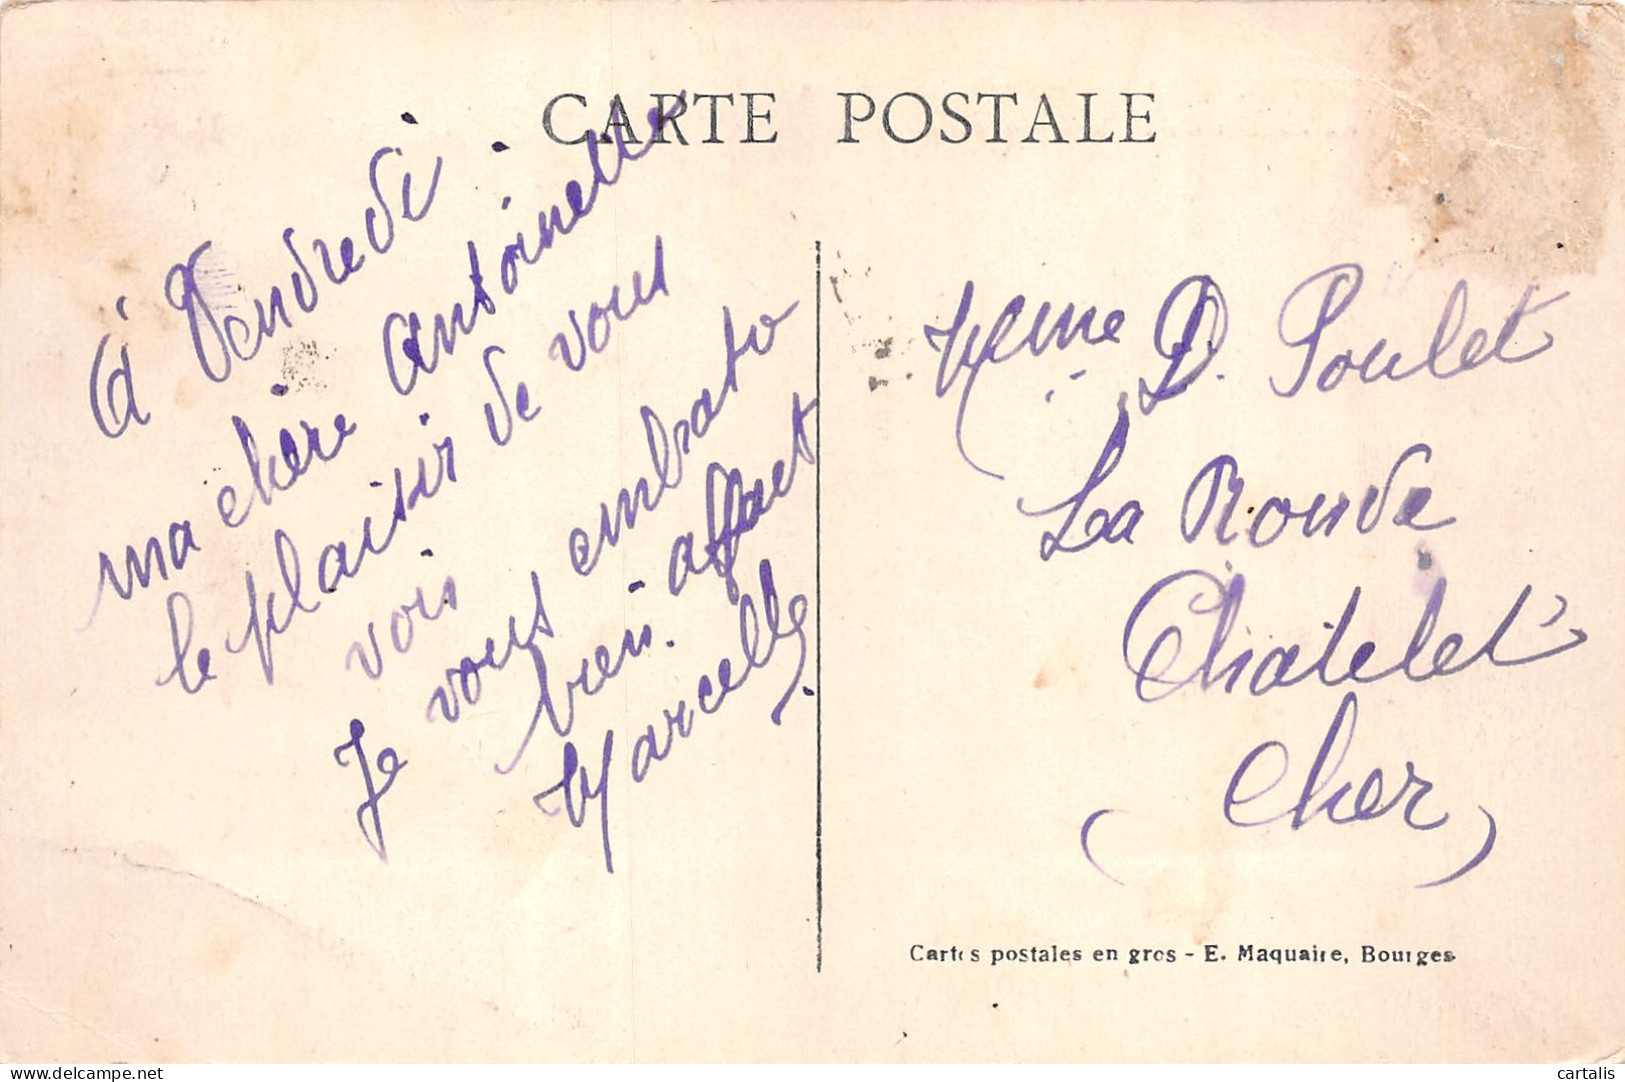 CARTE POSTALE
à Vendredi.
ma chère Antoinette
le plaisir de vous
voir
Je vous embrasse
bien. affect
Marcelle
Mme D. Poulet
La Ronde
Châtelet
(Cher)
Cartes postales en gros - E. Maquaire, Bourges
delcampe.net
cartalis